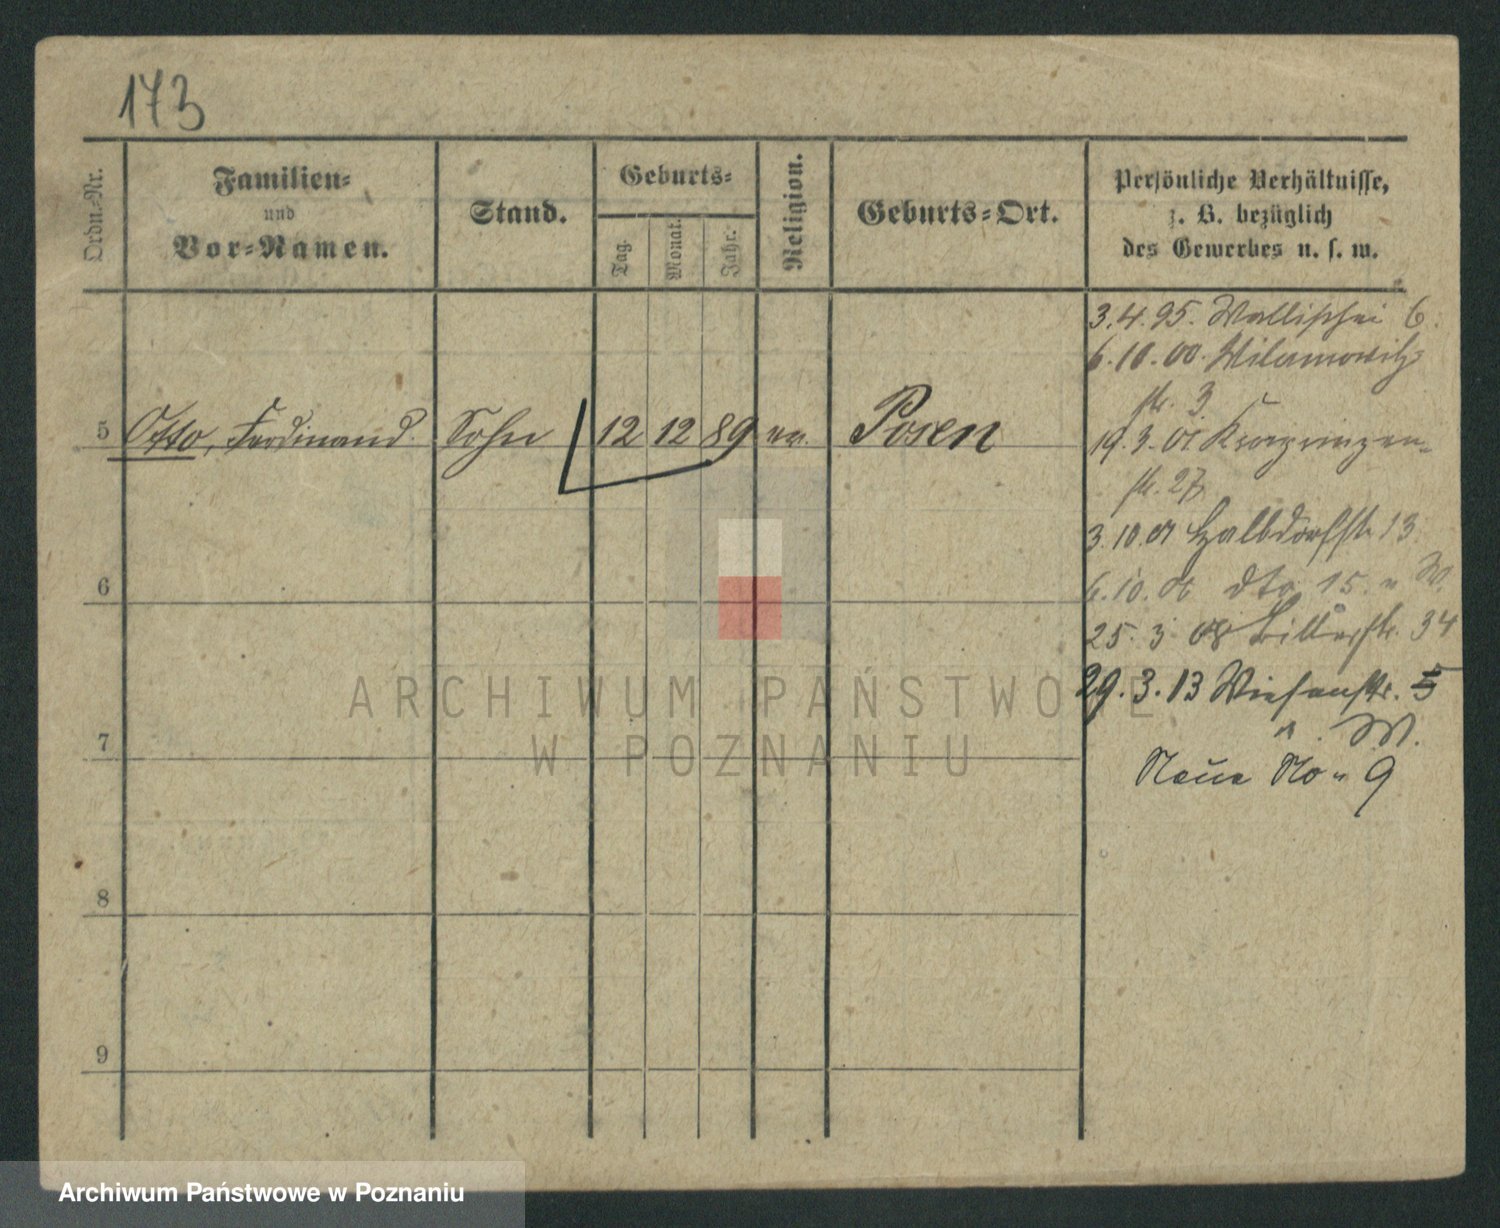 173
Ordn.-Nr.
Familien-
und
Vor-Namen.
Stand.
Geburts-
Tag.
Monat.
Jahr.
Religion.
Geburts-Ort.
Persönliche Verhältnisse,
z. B. bezüglich
des Gewerbes u. s. w.
5 Otto, Ferdinand. Sohn 12 12 89 ev. Posen
6
7
8
9
3.4.95. Wallischei 6.
6.10.00. Wilamowitz
str. 3
19.3.01 Kronprinzen-
str. 27
3.10.01 Halbdorfstr 13
6.10.06 dto 15. W.
25.3 08 Bitterstr. 34
29.3.13 Wiesenstr. 5
W.
Neue No 9
ARCHIWUM PAŃSTWOWE
W POZNANIU
Archiwum Państwowe w Poznaniu